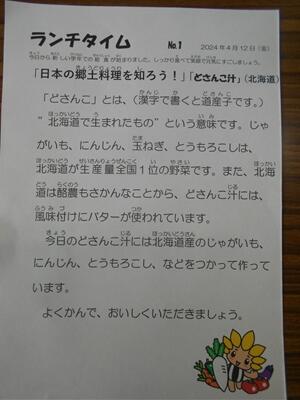 ランチタイム No.1 2024年4月12日(金)
今日から新しい学年での給食が始まりました。しっかり食べて笑顔で元気にすごしましょう。
「日本の郷土料理を知ろう!」「どさんこ汁」(北海道)
「どさんこ」とは、(漢字で書くと道産子です。)
"北海道で生まれたもの"という意味です。じゃ
がいも、にんじん、玉ねぎ、とうもろこしは、
北海道が生産量全国1位の野菜です。また、北海
道は酪農もさかんなことから、どさんこ汁には、
風味付けにバターが使われています。
今日のどさんこ汁には北海道産のじゃがいも、
にんじん、とうもろこし、などをつかって作って
います。
よくかんで、おいしくいただきましょう。